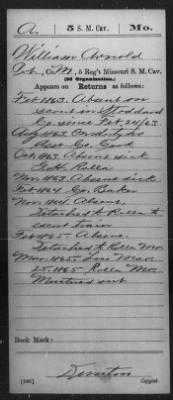 A. 5 S. M. Cav. Mo.
William Arnold
Pvt, Co. M, 5 Reg't Missouri S. M. Cav.
(2d Organization.)
Appears on Returns as follows:
Feb 1863. Absent on
scout in Stoddard
Co. since Feb 24/63
Aug 1863. On duty as
Asst Co. Cook
Oct 1863. Absent sick
Rolla
Nov 1863. Absent sick
Feb 1864 Co. Baker
Nov 1864. Absent
Detached to Rolla to
escort train
Feb 1865. Absent
Detached to Rolla Mo
Mar 1865. Loss Mar
25-1865 Rolla Mo
Mustered out
Book Mark:
(546)
Copyist.